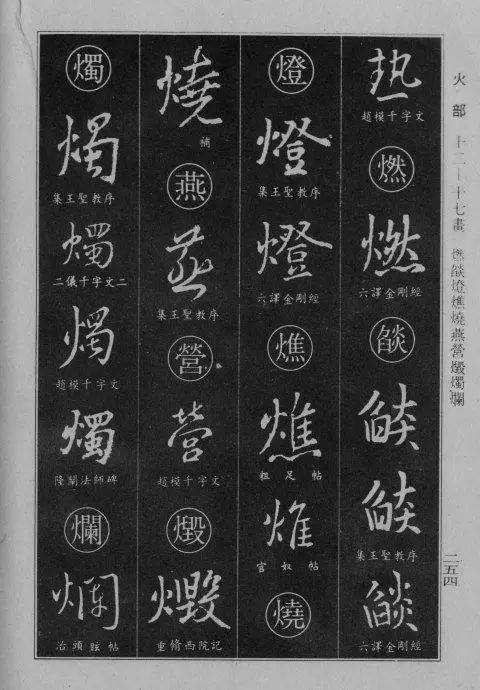 火部 十二—十七畫 燃燄燈燋燒燕營燬燭爛
二五四
热
趙模千字文
燃
燃
六譯金剛經
燄
燄
燄
集王聖教序
燄
六譯金剛經
燈
燈
集王聖教序
燈
六譯金剛經
燋
燋
粗足帖
燋
官奴帖
燒
燒
補
燕
燕
集王聖教序
營
營
趙模千字文
燬
燬
重脩西院記
燭
燭
集王聖教序
燭
二儀千字文二
燭
趙模千字文
燭
隆闡法師碑
爛
爛
治頭眩帖